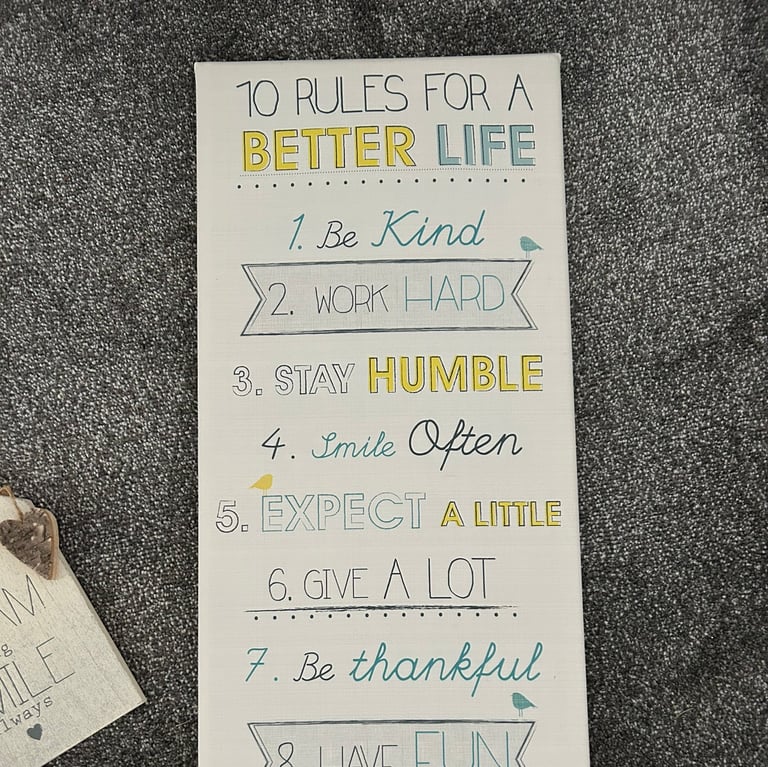 10 RULES FOR A
BETTER LIFE
1. Be Kind
2. WORK HARD
3. STAY HUMBLE
4. Smile Often
5. EXPECT A LITTLE
6. GIVE A LOT
7. Be thankful
8. HAVE FUN